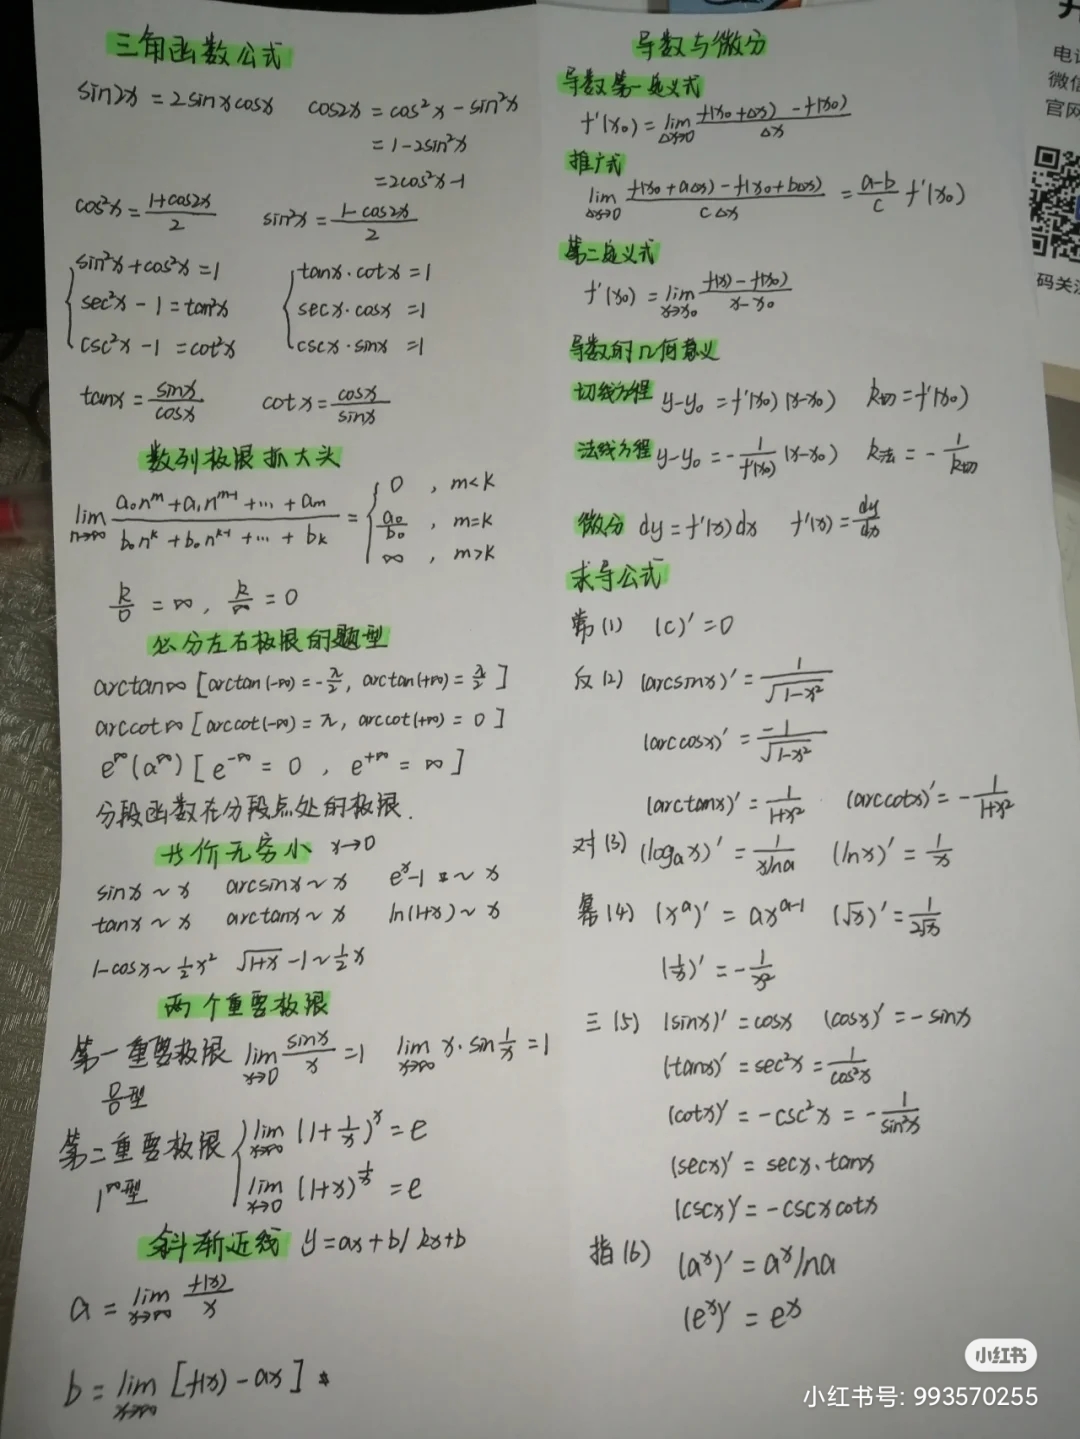 三角函数公式
sin2x = 2sinxcosx  cos2x = cos²x - sin²x
= 1-2sin²x
= 2cos²x-1
cos²x = (1+cos2x)/2  sin²x = (1-cos2x)/2
sin²x+cos²x = 1  tanx·cotx = 1
sec²x - 1 = tan²x  secx·cosx = 1
csc²x - 1 = cot²x  cscx·sinx = 1
tanx = sinx/cosx  cotx = cosx/sinx
数列极限抓大头
lim n→∞ (a₀n^m + a₁n^(m-1) + ... + a_m)/(b₀n^k + b₀n^(k-1) + ... + b_k) = { 0 , m<k
a₀/b₀ , m=k
∞ , m>k
k/0 = ∞ , k/∞ = 0
必分左右极限的题型
arctan∞ [arctan(-∞) = -π/2, arctan(+∞) = π/2]
arccot∞ [arccot(-∞) = π, arccot(+∞) = 0]
e^∞(a^∞) [e^-∞ = 0 , e^+∞ = ∞]
分段函数在分段点处的极限.
等价无穷小 x→0
sinx ~ x  arcsinx ~ x  e^x-1 ~ x
tanx ~ x  arctanx ~ x  ln(1+x) ~ x
1-cosx ~ ½x²  √(1+x) -1 ~ ½x
两个重要极限
第一重要极限 lim x→0 sinx/x = 1  lim x→∞ x·sin 1/x = 1
0/0型
第二重要极限 { lim x→∞ (1+1/x)^x = e
1^∞型  lim x→0 (1+x)^(1/x) = e
斜渐近线 y=ax+b/kx+b
a = lim x→∞ f(x)/x
b = lim x→∞ [f(x) - ax]
导数与微分
导数第一定义式
f'(x₀) = lim Δx→0 (f(x₀+Δx) - f(x₀))/Δx
推广式
lim Δx→0 (f(x₀+aΔx) - f(x₀+bΔx))/(cΔx) = (a-b)/c f'(x₀)
第二定义式
f'(x₀) = lim x→x₀ (f(x) - f(x₀))/(x-x₀)
导数的几何意义
切线方程 y-y₀ = f'(x₀)(x-x₀)  k切 = f'(x₀)
法线方程 y-y₀ = -1/f'(x₀) (x-x₀)  k法 = -1/k切
微分 dy = f'(x)dx  f'(x) = dy/dx
求导公式
常(1) (c)' = 0
反(2) (arcsinx)' = 1/√(1-x²)
(arccosx)' = -1/√(1-x²)
(arctanx)' = 1/(1+x²)  (arccotx)' = -1/(1+x²)
对(3) (logₐx)' = 1/(xlna)  (lnx)' = 1/x
幂(4) (x^a)' = ax^(a-1)  (√x)' = 1/(2√x)
(1/x)' = -1/x²
三(5) (sinx)' = cosx  (cosx)' = -sinx
(tanx)' = sec²x = 1/cos²x
(cotx)' = -csc²x = -1/sin²x
(secx)' = secx·tanx
(cscx)' = -cscxcotx
指(6) (a^x)' = a^x lna
(e^x)' = e^x
微信
官网
码关
小红书
小红书号: 993570255